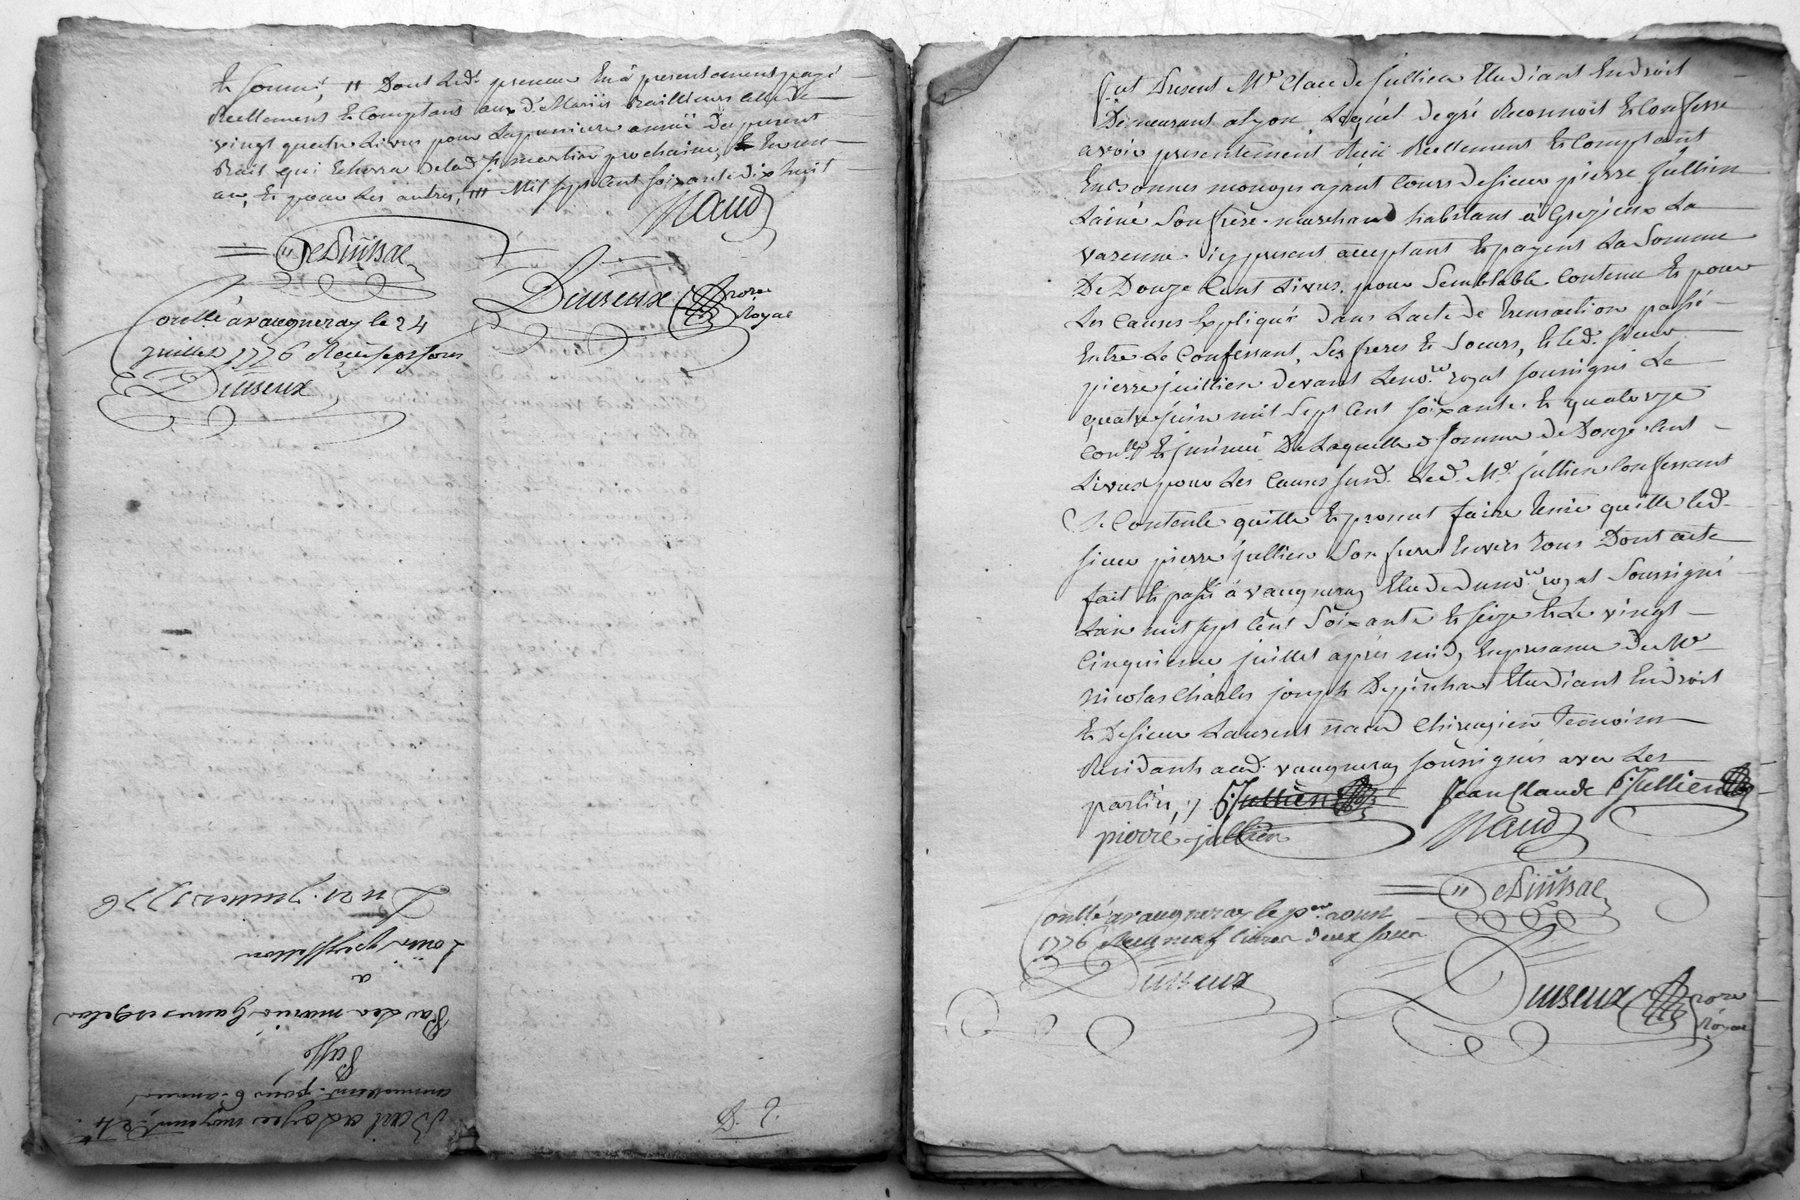 et somé, 11 Dont Led. preneur En a presentement payé
Reellement Et Comptant aux d. Mariés Bailleurs
vingt quatre Livres pour La premiere année Du present
Bail qui Echerra De lad. St martin prochaine, Et En un
an, Et pour Les autres, 111 Mil sept Cent soixante dix huit
Naud
DeSiński
Duiseux nore Royal
Conllé à vaugneray le 24
juillet 1776 Reçu sept sous
Duiseux
Du 21 juillet 1776
Louis
a
Par Les mariés
Bail a Loyer moyent 24
annuellemt pour 6 années
D. J.
fut Present Me Claude Jullien Etudiant En droit
Demeurant a Lyon, Lequel De gré Reconnoit Et Confesse
avoir presentement Reçu Reellement Et Comptant
En Bonnes monoyes ayant Cours De sieur pierre Jullien
L'ainé Son frere marchand habitant à Grezieu La
varenne icy present acceptant Et payent La Somme
De Douze Cent Livres pour Semblable Contenue Et pour
Les Causes Expliqués Dans L'acte De transaction passé
Entre Le Confessant, Ses freres Et Soeurs, Et led. sieur
pierre juillien devant Le nore royal soussigné Le
quatre juin mil Sept Cent soixante Et quatorze
Conllé Et insinué De Laquelle d. somme De Douze Cent
Livres pour Les Causes susd. Led. Me. jullien Confessant
Se Contente quitte Et promet faire tenir quitte led.
sieur pierre jullien Son frere Envers tous Dont acte
fait Et passé à vaugneray Etude du nore royal Soussigné
L'an mil sept Cent Soixante Et seize Et Le vingt
Cinquieme juillet après midy En presance De Me
nicolas Charles joseph Etudiant En droit
Et De sieur Laurent naud Chirurgien temoins
Residants aud. vaugneray soussignés avec Les
parties, ;) Jullien Jean Claude Jullien
pierre jullien Naud
DeSiński
Conllé a vaugneray le per. aoust
1776 Reçu neuf livres deux sous
Duiseux
Duiseux nore Royal